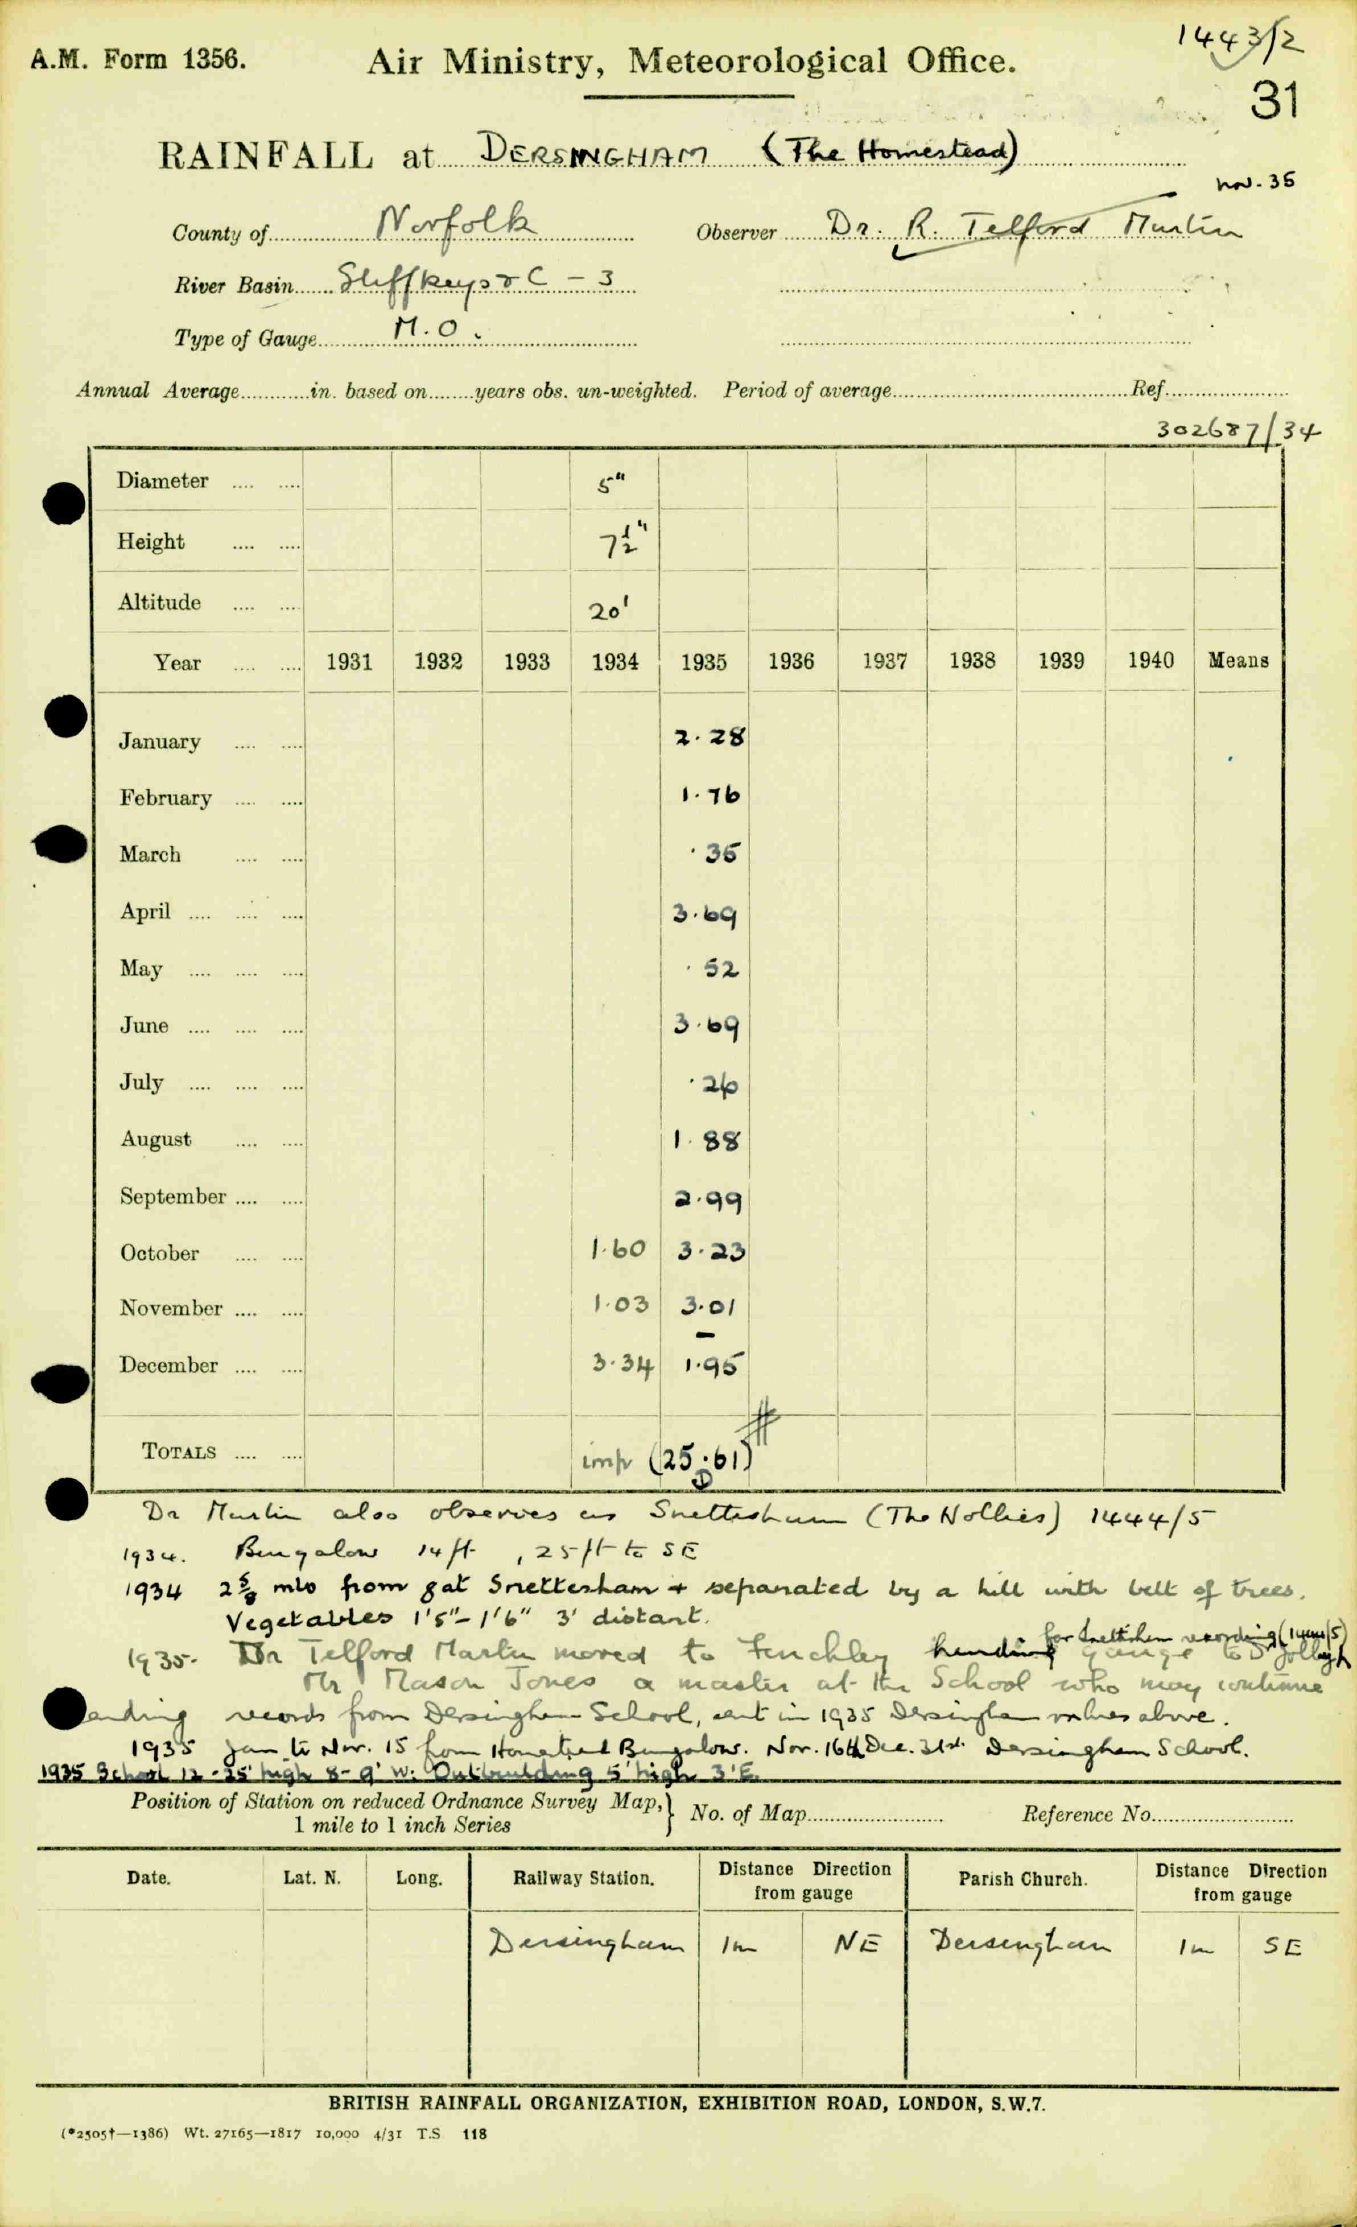 1443/2
A.M. Form 1356.
Air Ministry, Meteorological Office.
31
RAINFALL at DERSINGHAM (The Homestead)
Nov. 35
County of Norfolk
Observer Dr. R. Telford Martin
River Basin Stiffkey &c - 3
Type of Gauge M.O.
Annual Average in. based on years obs. un-weighted. Period of average Ref.
302687/34
Diameter 5"
Height 7½"
Altitude 20'
Year 1931 1932 1933 1934 1935 1936 1937 1938 1939 1940 Means
January 2.28
February 1.76
March .35
April 3.69
May .52
June 3.69
July .26
August 1.88
September 2.99
October 1.60 3.23
November 1.03 3.01
December 3.34 1.95
TOTALS imp (25.61) #
D
Dr Martin also observes at Snettisham (The Hollies) 1444/5
1934. Bungalow 14ft, 25ft to SE
1934 2⅝ mls from g at Snettesham + separated by a hill with belt of trees.
Vegetables 1'5"-1'6" 3' distant.
for Snettisham recording (1444/5)
1935. Dr Telford Martin moved to Finchley handing gauge to
Mr Mason Jones a master at the School who may continue
sending records from Dersingham School, sent in 1935 Dersingham values above.
1935 Jan to Nov. 15 from Homestead Bungalow. Nov. 16th Dec. 31st Dersingham School.
1935 School 12-25' high 8-9' W: Outbuilding 5' high 3'E.
Position of Station on reduced Ordnance Survey Map, } No. of Map Reference No.
1 mile to 1 inch Series
Date. Lat. N. Long. Railway Station. Distance Direction from gauge Parish Church. Distance Direction from gauge
Dersingham 1m NE Dersingham 1m SE
BRITISH RAINFALL ORGANIZATION, EXHIBITION ROAD, LONDON, S.W.7.
(*2505†—1386) Wt. 27165—1817 10,000 4/31 T.S 118